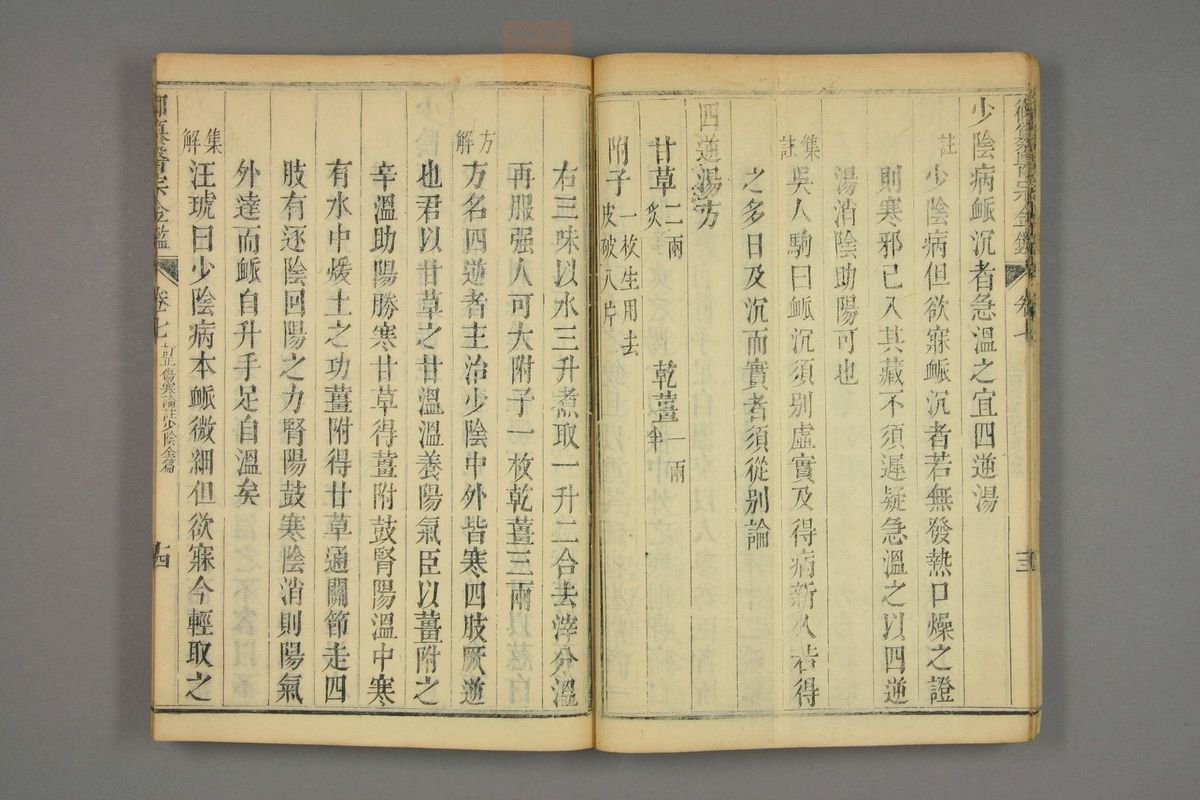 御纂醫宗金鑑 卷七 三
少陰病脈沉者急溫之宜四逆湯
註 少陰病但欲寐脈沉者若無發熱口燥之證
則寒邪已入其藏不須遲疑急溫之以四逆
湯消陰助陽可也
集註 吳人駒曰脈沉須别虛實及得病新久若得
之多日及沉而實者須從别論
四逆湯方
甘草二兩炙 乾薑一兩半
附子一枚生用去皮破八片
右三味以水三升煮取一升二合去滓分溫
再服强人可大附子一枚乾薑三兩
方解 方名四逆者主治少陰中外皆寒四肢厥逆
也君以甘草之甘溫溫養陽氣臣以薑附之
辛溫助陽勝寒甘草得薑附鼓腎陽溫中寒
有水中煖土之功薑附得甘草通關節走四
肢有逐陰回陽之力腎陽鼓寒陰消則陽氣
外達而脈自升手足自溫矣
集解 汪琥曰少陰病本脈微細但欲寐今輕取之
御纂醫宗金鑑 卷七 訂正傷寒論註少陰全篇 十四